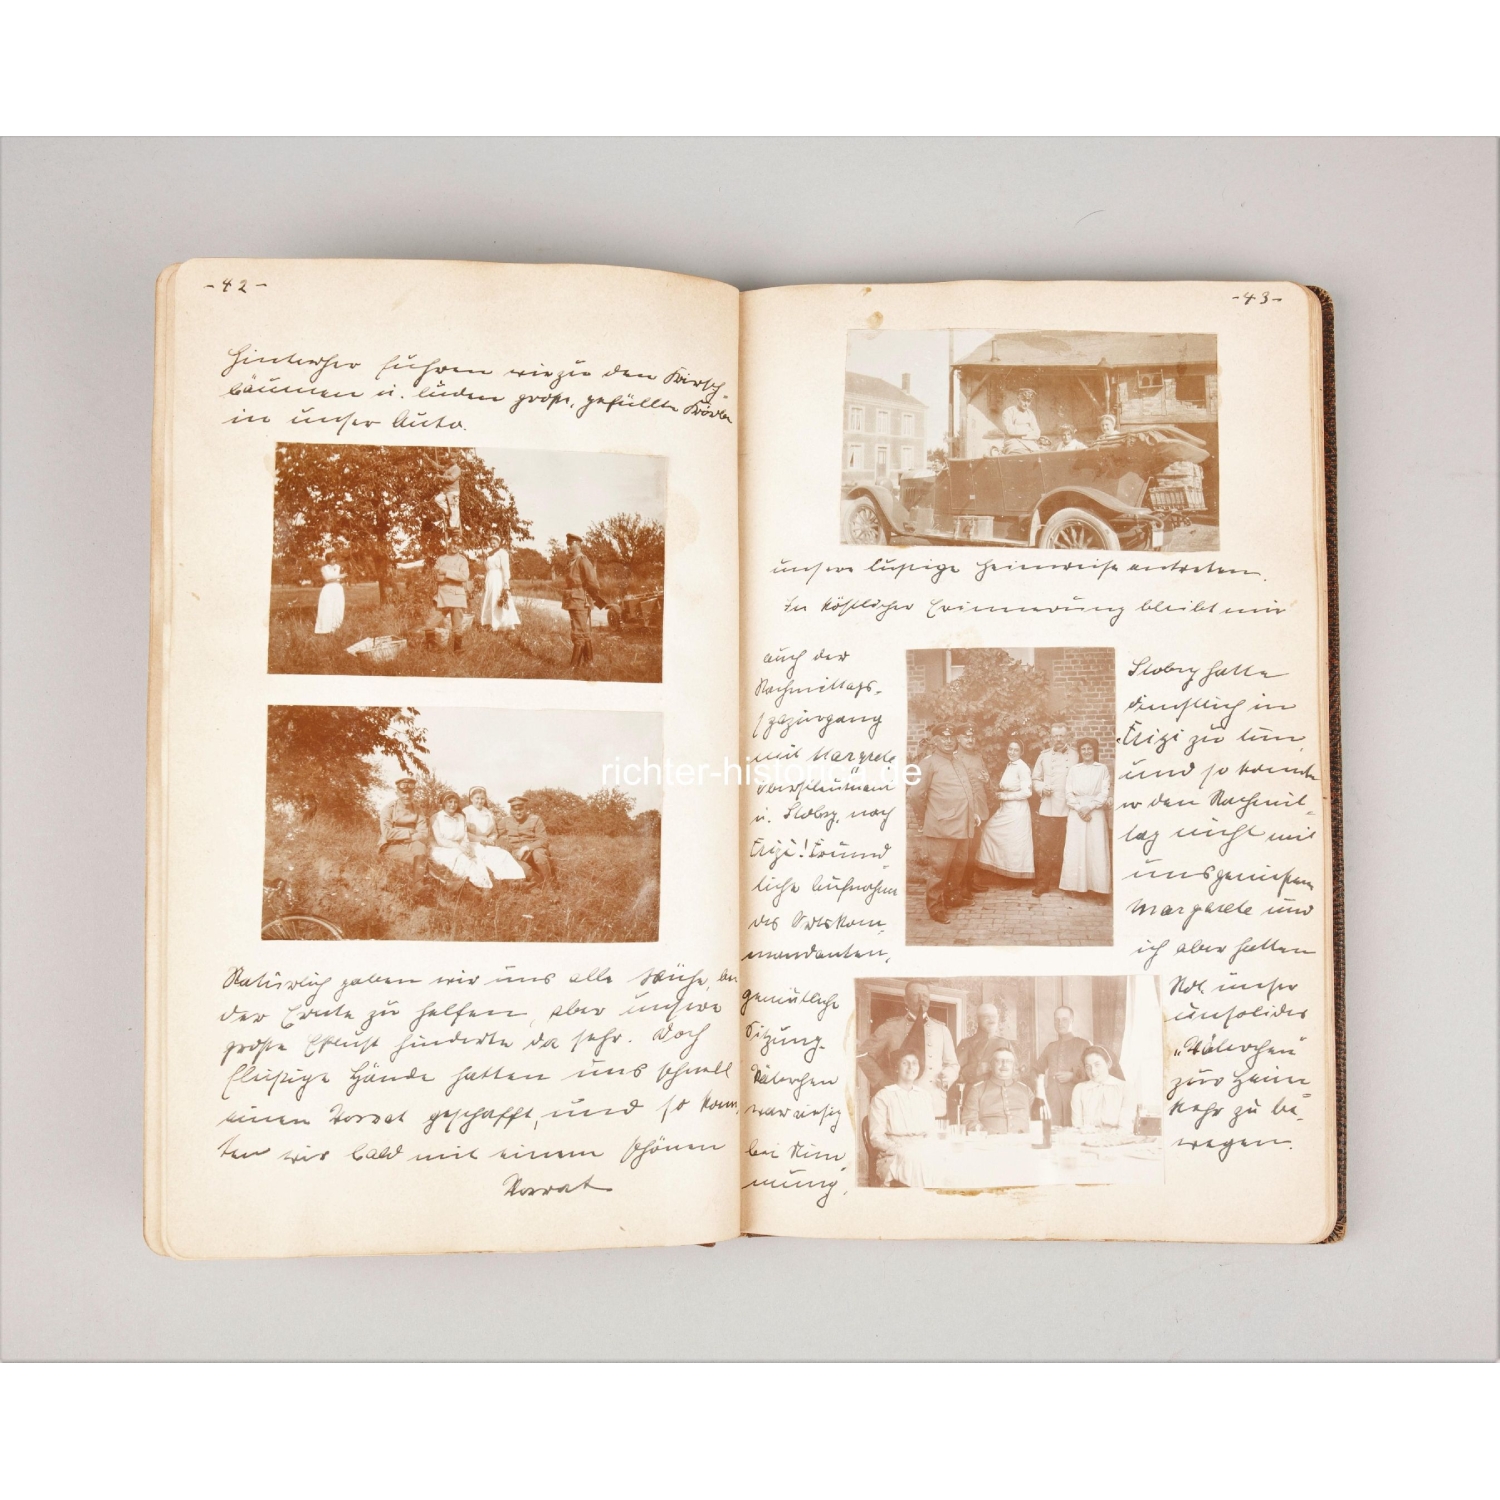 -42-
Hinterher fuhren wir zu den Kirsch-
bäumen u. luden große, gefüllte Körbe
in unser Auto.
Natürlich gaben wir uns alle Mühe, bei
der Ernte zu helfen, aber unsere
große Eßlust hinderte da sehr. Doch
fleißige Hände hatten uns schnell
einen Vorrat geschafft, und so konn-
ten wir bald mit einem schönen
Vorrat
-43-
unsere lustige Heimreise antreten.
In köstlicher Erinnerung bleibt mir
auch der
Nachmittags-
spaziergang
mit Margrete
Oberstleutnant
u. Stobrg. nach
Erizi! Freund-
liche Aufnahme
des Ortskom-
mandanten,
gemütliche
Sitzung.
Väterchen
war riesig
bei Stim-
mung.
Stobrg hatte
dienstlich in
Erizi zu tun,
und so konnte
er den Nachmit-
tag nicht mit
uns genießen
Margarete und
ich aber hatten
Not unser
unsolides
„Väterchen"
zur Heim-
kehr zu be-
wegen.
richter-historica.de